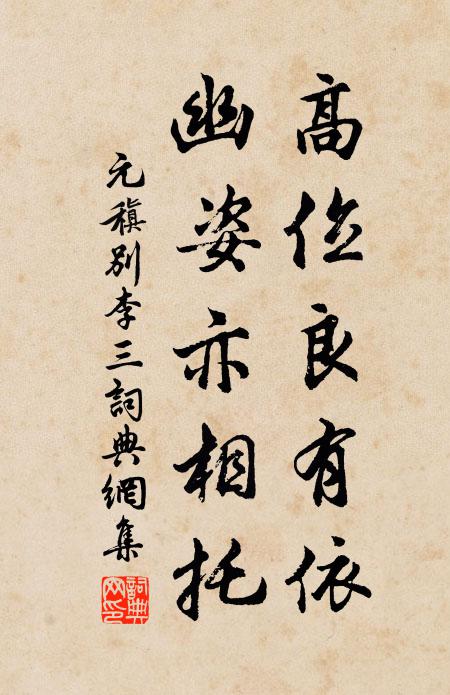 高位良有依
幽姿亦相托
元稹別李三詞典網集
詞典
网印